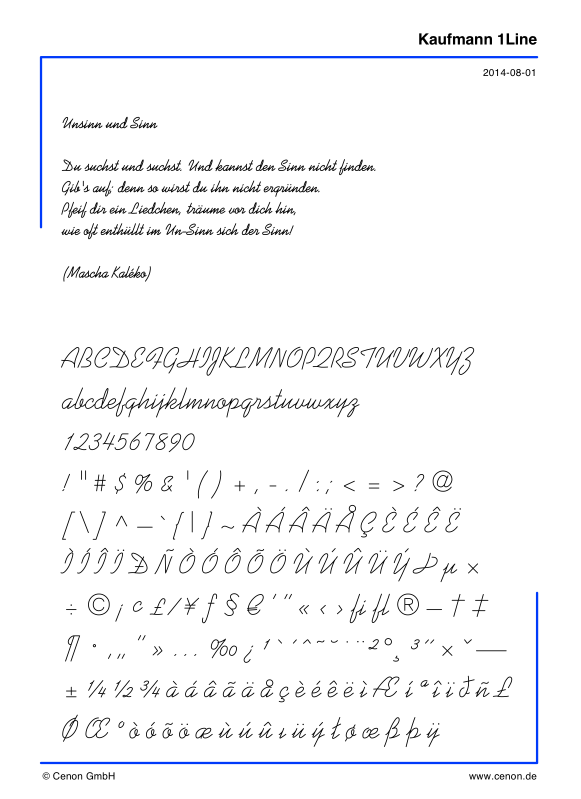 Kaufmann 1Line
2014-08-01
Unsinn und Sinn
Du suchst und suchst. Und kannst den Sinn nicht finden.
Gib's auf; denn so wirst du ihn nicht ergründen.
Pfeif dir ein Liedchen, träume vor dich hin,
wie oft enthüllt im Un-Sinn sich der Sinn!
(Mascha Kaléko)
ABCDEFGHIJKLMNOPQRSTUVWXYZ
abcdefghijklmnopqrstuvwxyz
1234567890
! " # $ % & ' ( ) + , - . / : ; < = > ? @
[ \ ] ^ — ` { | } ~ À Á Â Ä Å Ç È É Ê Ë
Ì Í Î Ï Ð Ñ Ò Ó Ô Õ Ö Ù Ú Û Ü Ý Þ µ ×
÷ © ¡ ¢ £ / ¥ ƒ § € ' " « ‹ › fi fl ® – † ‡
¶ · ‚ „ ” » … ‰ ¿ ¹ ` ´ ^ ~ ¯ ˘ ˙ ¨ ² ° ¸ ³ ˝ × ˇ —
± ¼ ½ ¾ à á â ã ä å ç è é ê ë ì Æ í ª î ï ð ñ Ł
Ø Œ º ò ó õ ö æ ù ú û ı ü ý ł ø œ ß þ ÿ
© Cenon GmbH
www.cenon.de